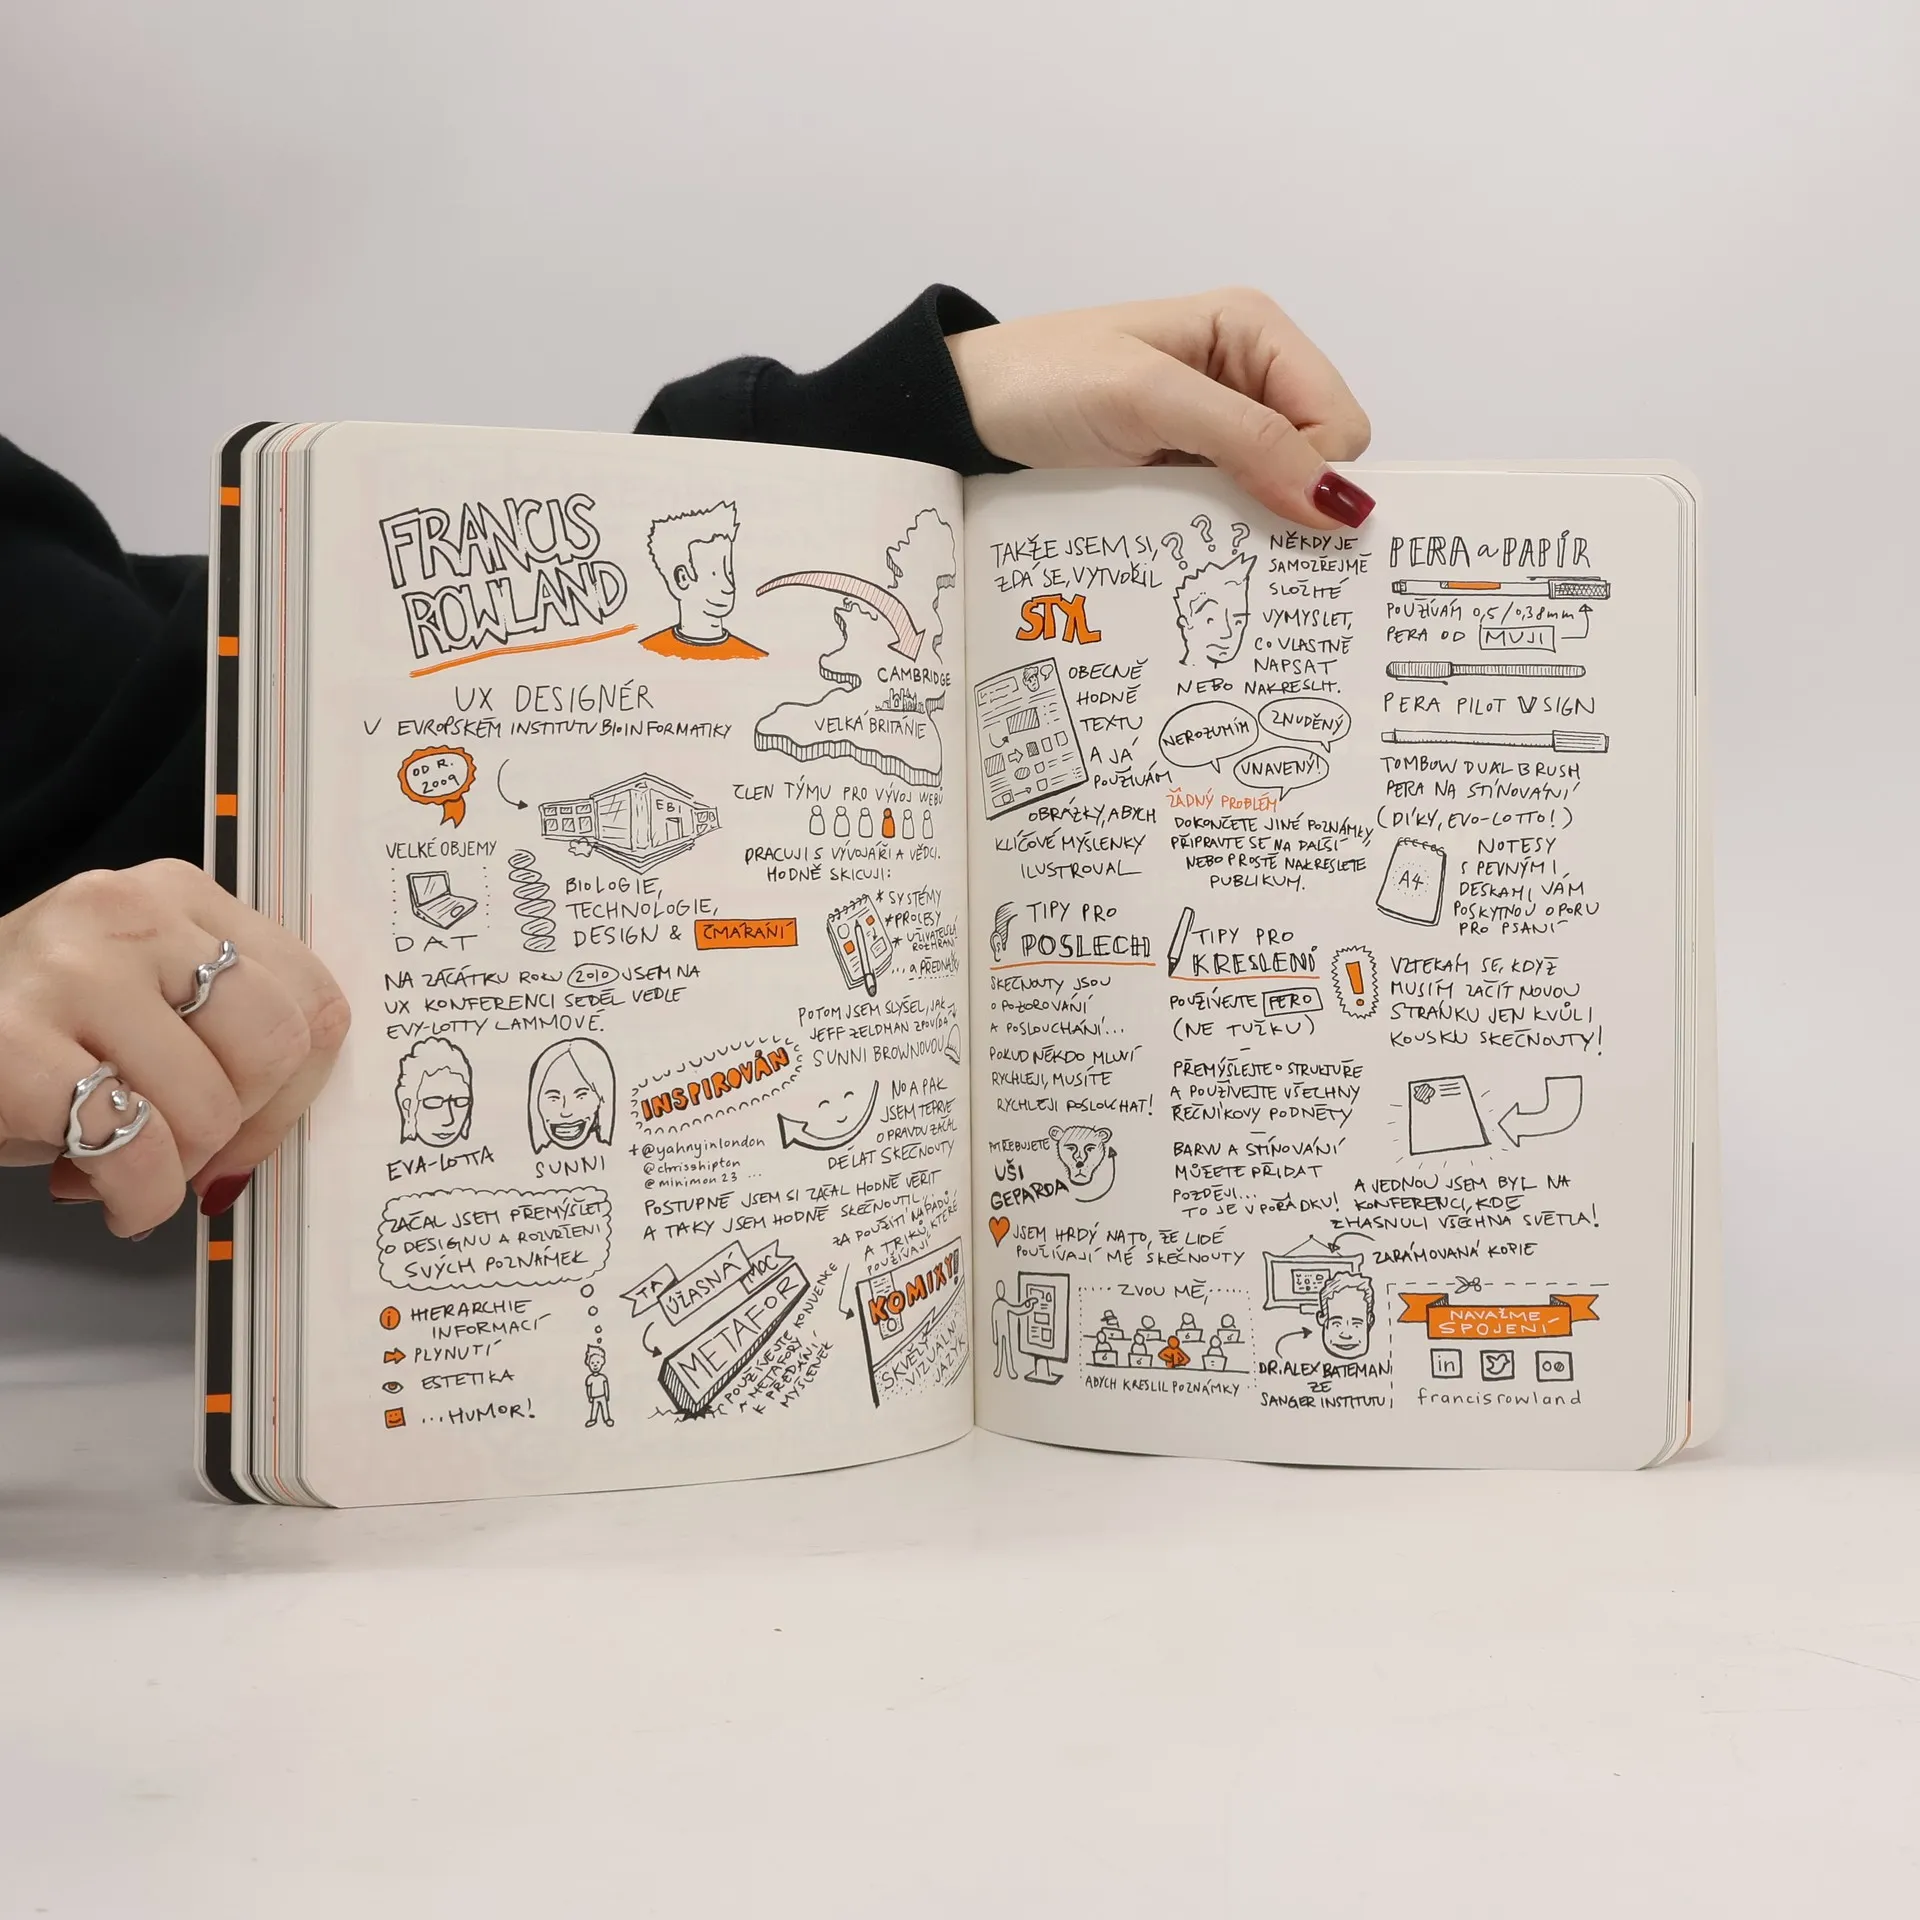 FRANCIS
ROWLAND
UX DESIGNÉR
V EVROPSKÉM INSTITUTU BIOINFORMATIKY
OD R.
2009
EBI
CAMBRIDGE
VELKÁ BRITÁNIE
ČLEN TÝMU PRO VÝVOJ WEBU
PRACUJI S VÝVOJÁŘI A VĚDCI.
HODNĚ SKICUJI:
* SYSTÉMY
* PROCESY
* UŽIVATELSKÁ
ROZHRANÍ
... a PŘEDNÁŠKY
VELKÉ OBJEMY
DAT
BIOLOGIE,
TECHNOLOGIE,
DESIGN & ČMÁRÁNÍ
NA ZÁČÁTKU ROKU 2010 JSEM NA
UX KONFERENCI SEDĚL VEDLE
EVY-LOTTY LAMMOVÉ.
EVA-LOTTA
SUNNI
INSPIROVÁN
+@yahnyinlondon
@chrisshipton
@minimon23 ...
POTOM JSEM SLYŠEL, JAK
JEFF ZELDMAN ZPOVÍDÁ
SUNNI BROWNOVOU
NO A PAK
JSEM TEPRVE
OPRAVDU ZAČAL
DĚLAT SKEČNOUTY
ZAČAL JSEM PŘEMÝŠLET
O DESIGNU A ROZVRŽENÍ
SVÝCH POZNÁMEK
i HIERARCHIE
INFORMACÍ
PLYNUTÍ
ESTETIKA
...HUMOR!
POSTUPNĚ JSEM SI ZAČAL HODNĚ VĚŘIT
A TAKY JSEM HODNĚ SKEČNOUTIL,
ZA POUŽITÍ NÁPADŮ
A TRIKŮ, KTERÉ
POUŽÍVAJÍ
KOMIXY!
SKVĚLÝ
VIZUÁLNÍ
JAZYK
TA
ÚŽASNÁ
MOC
METAFOR
POUŽÍVEJTE KONVENCE
A METAFORY
K PŘEDÁNÍ
MYŠLENEK
TAKŽE JSEM SI,
ZDÁ SE, VYTVOŘIL
STYL
OBECNĚ
HODNĚ
TEXTU
A JÁ
POUŽÍVÁM
OBRÁZKY, ABYCH
KLÍČOVÉ MYŠLENKY
ILUSTROVAL
? ? ?
NĚKDY JE
SAMOZŘEJMĚ
SLOŽITÉ
VYMYSLET,
CO VLASTNĚ
NAPSAT
NEBO NAKRESLIT.
NEROZUMÍM
ZNUDĚNÝ
UNAVENÝ!
ŽÁDNÝ PROBLÉM
DOKONČETE JINÉ POZNÁMKY,
PŘIPRAVTE SE NA DALŠÍ
NEBO PROSTĚ NAKRESLETE
PUBLIKUM.
TIPY PRO
POSLECH
SKEČNOUTY JSOU
O POZOROVÁNÍ
A POSLOUCHÁNÍ...
POKUD NĚKDO MLUVÍ
RYCHLEJI, MUSÍTE
RYCHLEJI POSLOUCHAT!
POTŘEBUJETE
UŠI
GEPARDA
TIPY PRO
KRESLENÍ
POUŽÍVEJTE PERO
(NE TUŽKU)
PŘEMÝŠLEJTE O STRUKTUŘE
A POUŽÍVEJTE VŠECHNY
ŘEČNÍKOVY PODNĚTY
BARVU A STÍNOVÁNÍ
MŮŽETE PŘIDAT
POZDĚJI...
TO JE V POŘÁDKU!
JSEM HRDÝ NA TO, ŽE LIDÉ
POUŽÍVAJÍ MÉ SKEČNOUTY
ZVOU MĚ,
ABYCH KRESLIL POZNÁMKY
PERA a PAPÍR
POUŽÍVÁM 0,5/0,38mm
PERA OD MUJI
PERA PILOT V SIGN
TOMBOW DUAL BRUSH
PERA NA STÍNOVÁNÍ
(DÍKY, EVO-LOTTO!)
A4
NOTESY
S PEVNÝMI
DESKAMI VÁM
POSKYTNOU OPORU
PRO PSANÍ
!
VZTEKÁM SE, KDYŽ
MUSÍM ZAČÍT NOVOU
STRÁNKU JEN KVŮLI
KOUSKU SKEČNOUTY!
A JEDNOU JSEM BYL NA
KONFERENCI, KDE
ZHASNULI VŠECHNA SVĚTLA!
ZARÁMOVANÁ KOPIE
DR. ALEX BATEMAN
ZE
SANGER INSTITUTU
NAVAŽME
SPOJENÍ
in
francisrowland